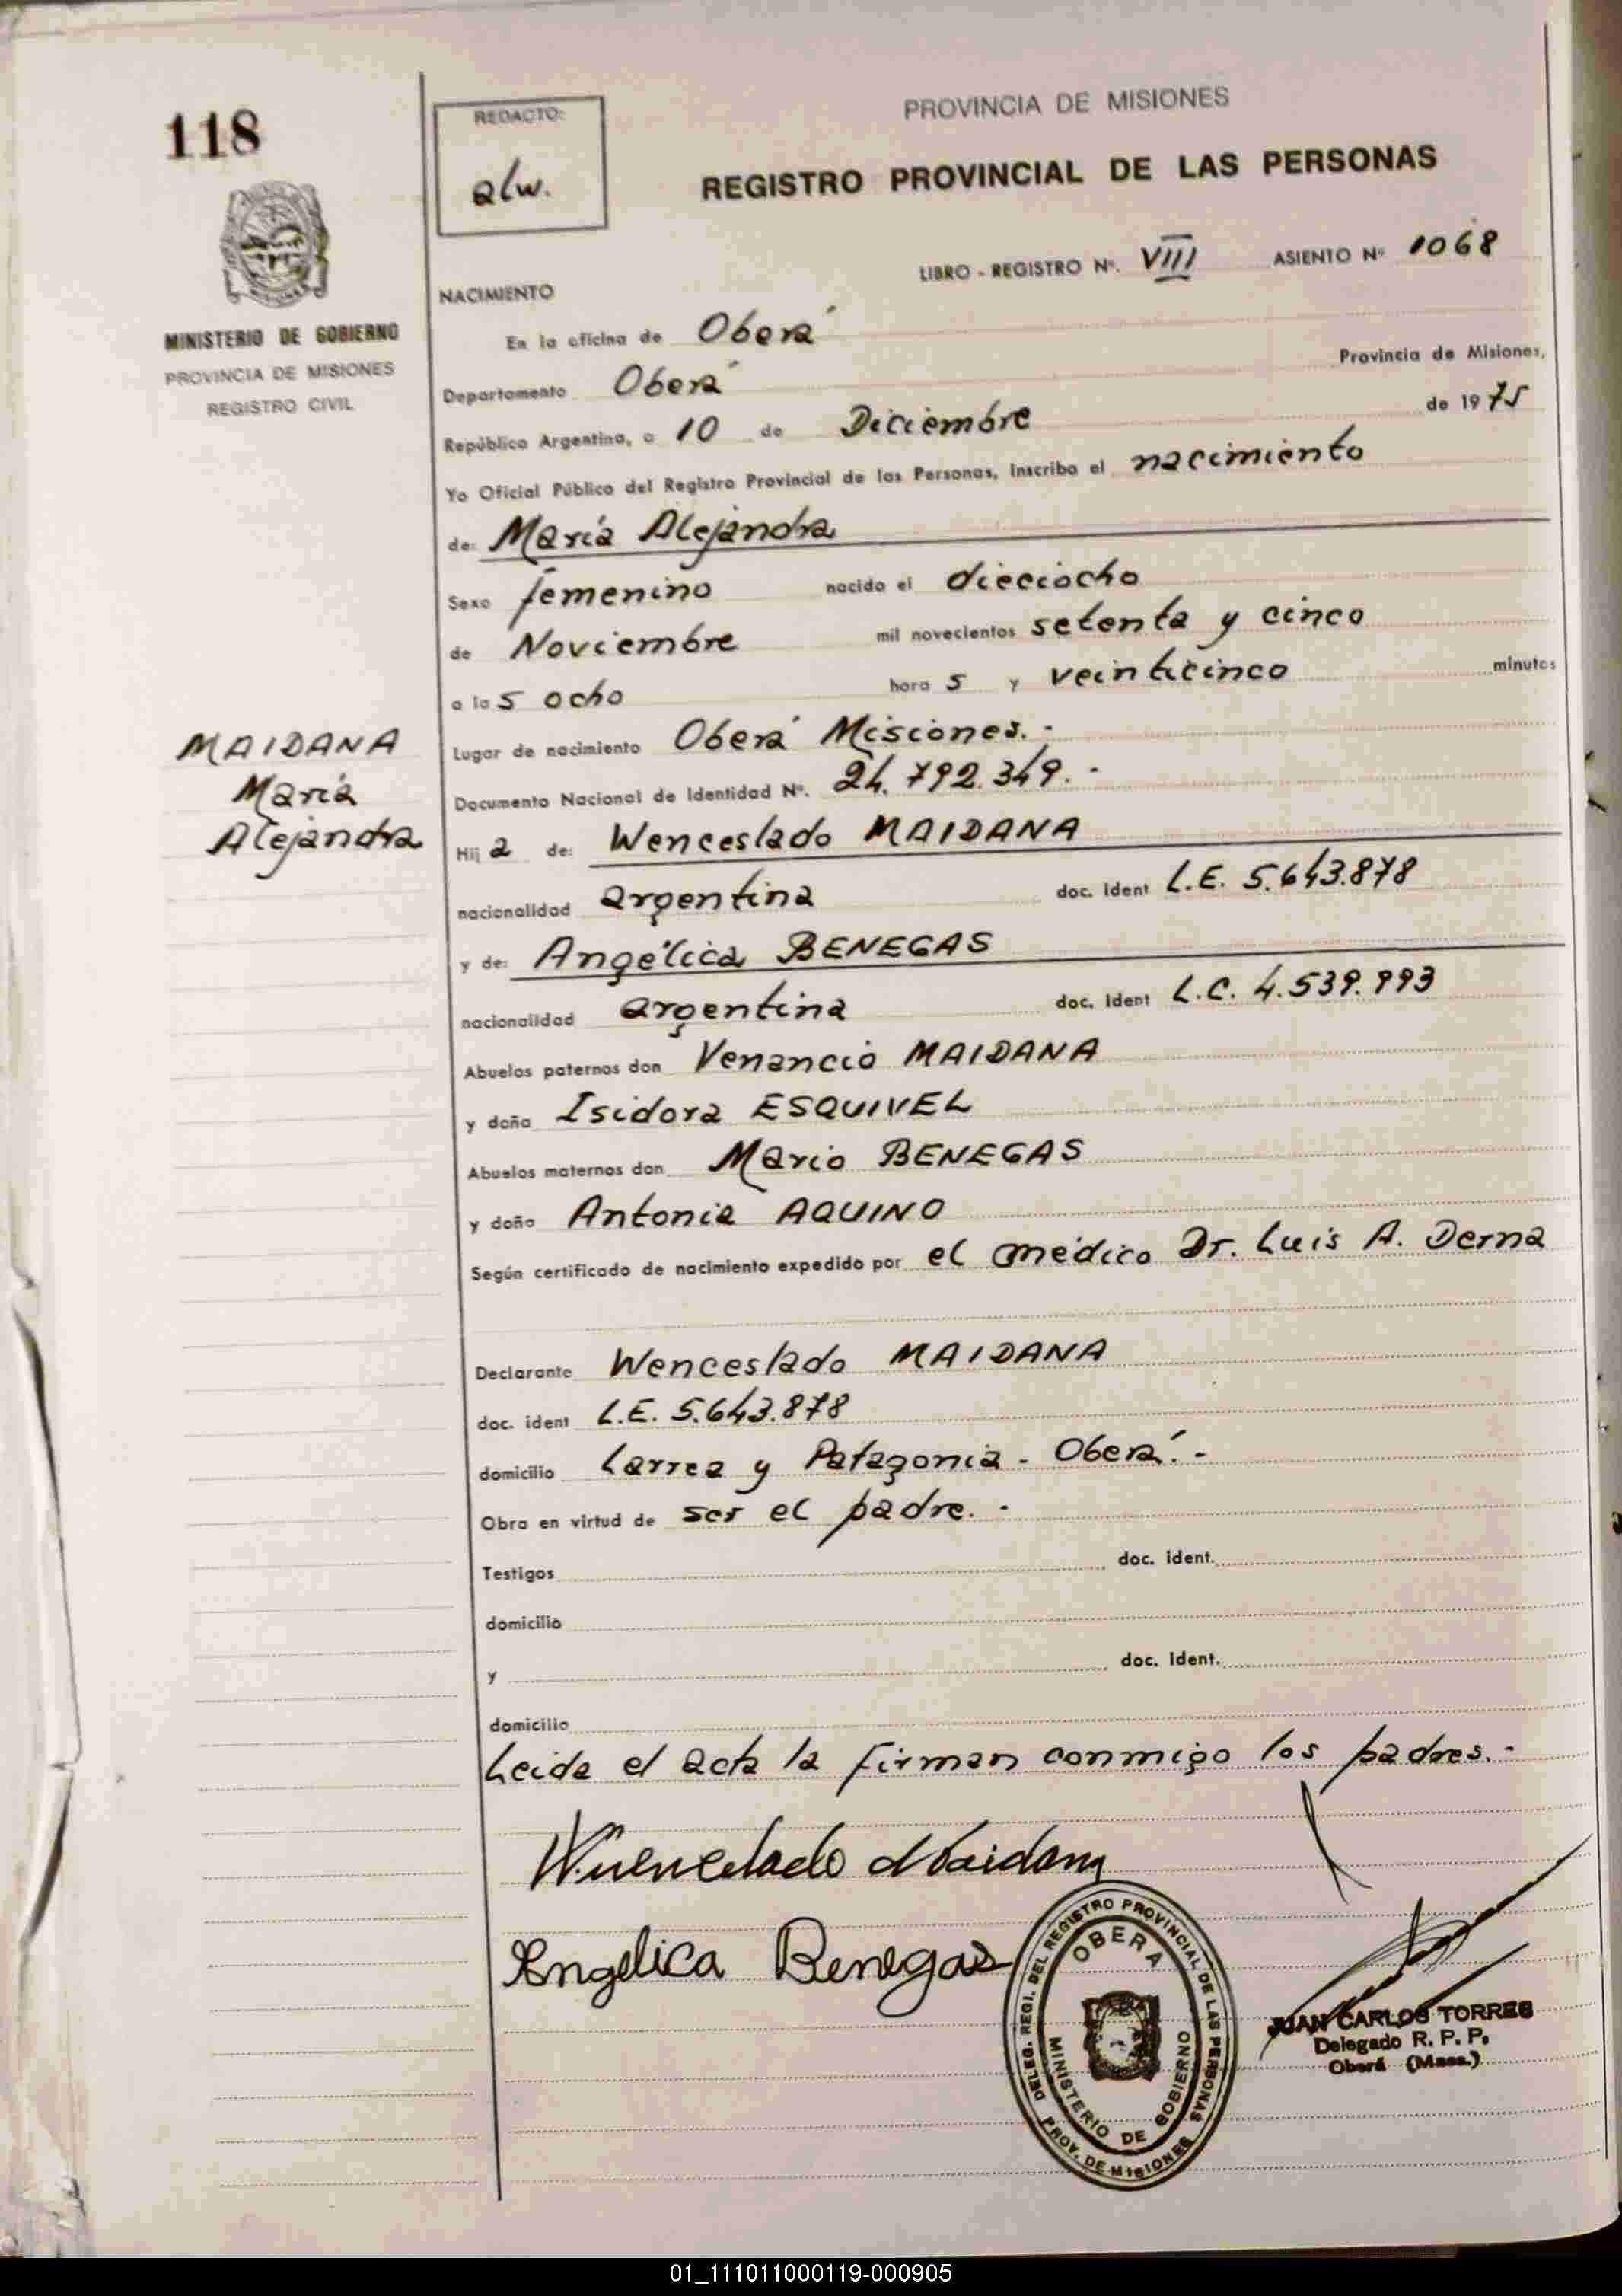 118
REDACTO:
alw.
PROVINCIA DE MISIONES
REGISTRO PROVINCIAL DE LAS PERSONAS
LIBRO - REGISTRO Nº. VIII ASIENTO Nº 1068
MINISTERIO DE GOBIERNO
PROVINCIA DE MISIONES
REGISTRO CIVIL
NACIMIENTO
En la oficina de Oberá
Departamento Oberá Provincia de Misiones,
República Argentina, a 10 de Diciembre de 1975
Yo Oficial Público del Registro Provincial de las Personas, Inscribo el nacimiento
de: María Alejandra
Sexo femenino nacido el dieciocho
de Noviembre mil novecientos setenta y cinco
a las ocho horas y veinticinco minutos
Lugar de nacimiento Oberá Misiones.-
Documento Nacional de Identidad Nº. 24.792.349.-
MAIDANA
María
Alejandra
Hija de: Wenceslado MAIDANA
nacionalidad argentina doc. ident L.E. 5.643.878
y de: Angélica BENEGAS
nacionalidad argentina doc. ident L.C. 4.539.993
Abuelos paternos don Venancio MAIDANA
y doña Isidora ESQUIVEL
Abuelos maternos don Mario BENEGAS
y doña Antonia AQUINO
Según certificado de nacimiento expedido por el médico Dr. Luis A. Derna
Declarante Wenceslado MAIDANA
doc. ident L.E. 5.643.878
domicilio Larrea y Patagonia - Oberá.-
Obra en virtud de ser el padre.-
Testigos doc. ident.
domicilio
y doc. ident.
domicilio
Leida el acta la firman conmigo los padres.-
Wuencelado Maidana
Angelica Benegas
DELEG. REGI. DEL REGISTRO PROVINCIAL DE LAS PERSONAS
OBERA
MINISTERIO DE GOBIERNO
PROV. DE MISIONES
JUAN CARLOS TORRES
Delegado R. P. P.
Oberá (Mnes.)
01_111011000119-000905